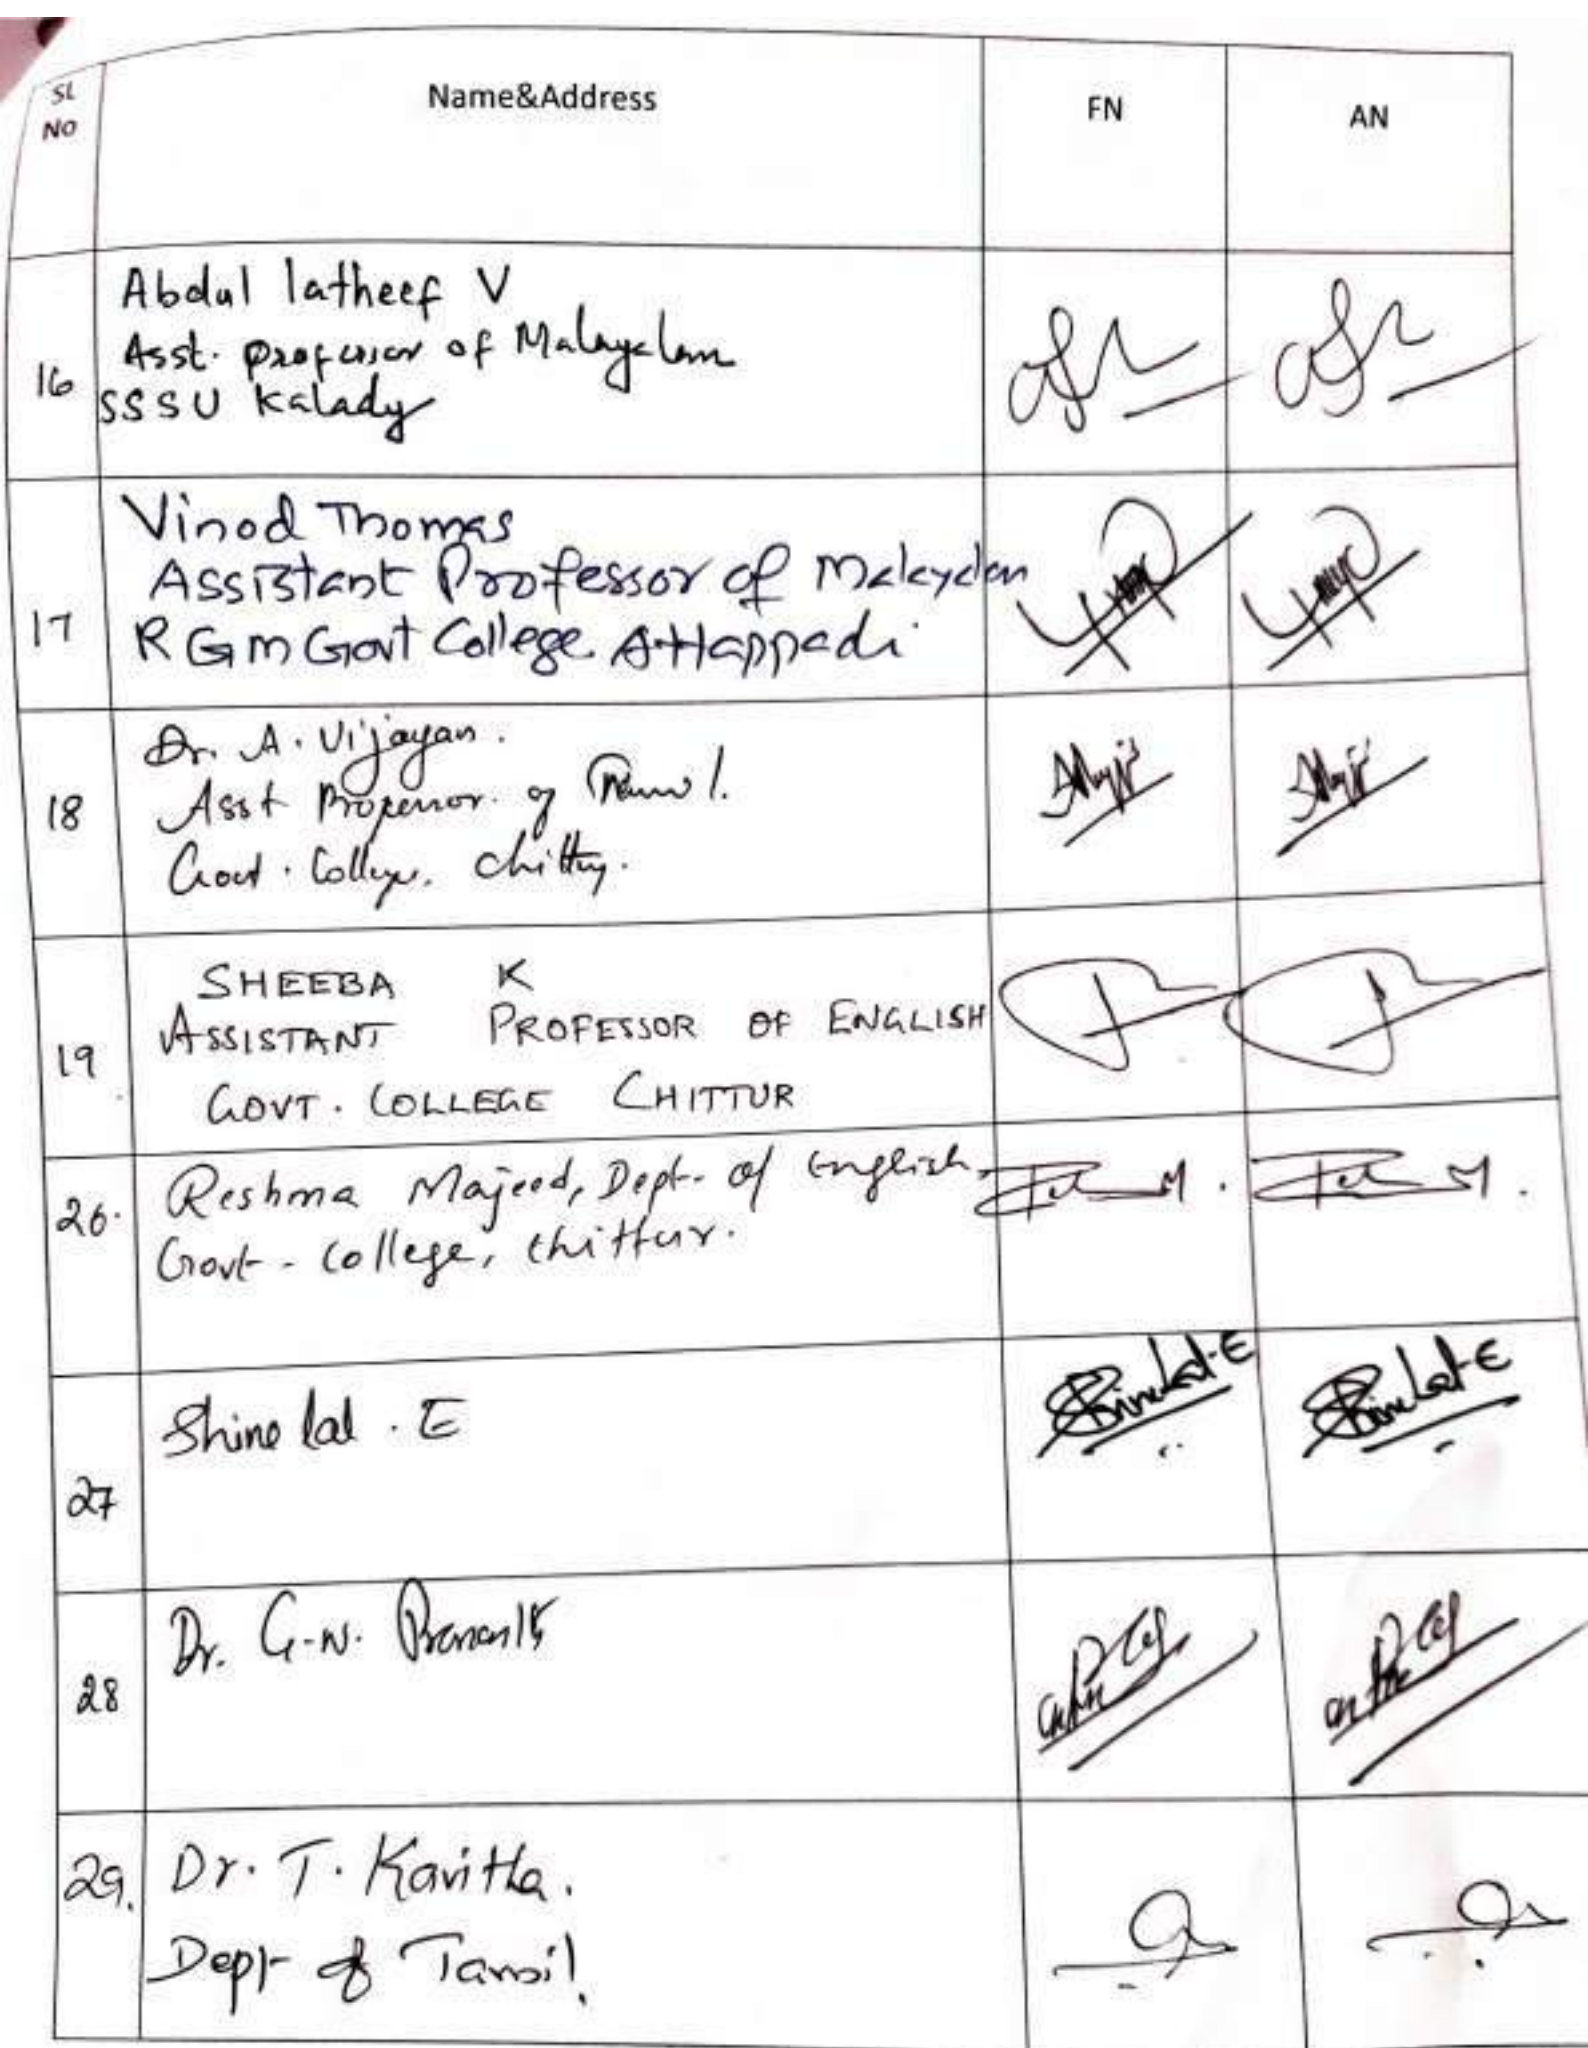 SL
NO
Name&Address
FN
AN
16
Abdul latheef V
Asst. professor of Malayalam
SSSU Kalady
17
Vinod Thomas
Assistant Professor of Malayalam
RGM Govt College Attappadi
18
Dr. A. Vijayan.
Asst Professor of Tamil.
Govt. College, Chittur.
19
SHEEBA K
ASSISTANT PROFESSOR OF ENGLISH
GOVT. COLLEGE CHITTUR
26.
Reshma Majeed, Dept. of English,
Govt. College, Chittur.
27
Shine lal . E
Shine Lal-E
Shine Lal-E
28
Dr. G.N.
29.
Dr. T. Kavitha.
Dept of Tamil.